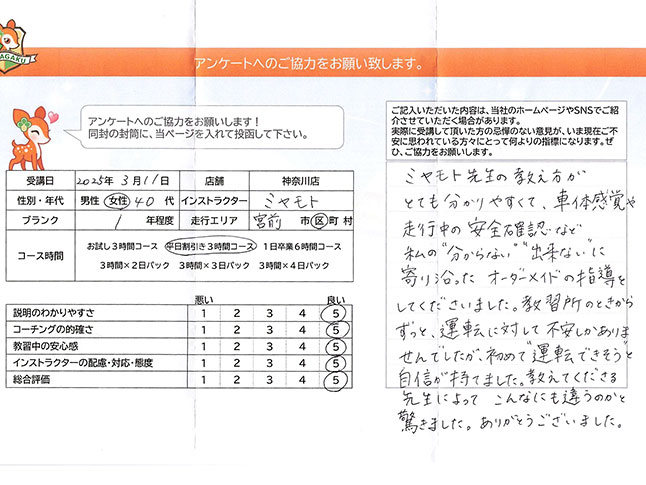 AGAKU
アンケートへのご協力をお願い致します。
アンケートへのご協力をお願いします！
同封の封筒に、当ページを入れて投函して下さい。
受講日 2025年 3月11日 店舗 神奈川店
性別・年代 男性 女性 40 代 インストラクター ミヤモト
ブランク 1 年程度 走行エリア 宮前 市 区 町 村
コース時間 お試し3時間コース 平日割引き3時間コース 1日卒業6時間コース
3時間×2日パック 3時間×3日パック 3時間×4日パック
悪い 良い
説明のわかりやすさ 1 2 3 4 5
コーチングの的確さ 1 2 3 4 5
教習中の安心感 1 2 3 4 5
インストラクターの配慮・対応・態度 1 2 3 4 5
総合評価 1 2 3 4 5
ご記入いただいた内容は、当社のホームページやSNSでご紹
介させていただく場合があります。
実際に受講して頂いた方の忌憚のない意見が、いま現在ご不
安に思われている方々にとって何よりの指標になります。ぜ
ひ、ご協力をお願いします。
ミヤモト先生の教え方が
とても分かりやすくて、車体感覚や
走行中の安全確認など
私の"分からない""出来ない"に
寄り沿ったオーダーメイドの指導を
してくださいました。教習所のときから
ずっと、運転に対して不安しかありま
せんでしたが、初めて"運転できそう"と
自信が持てました。教えてくださる
先生によって こんなにも違うのかと
驚きました。ありがとうございました。